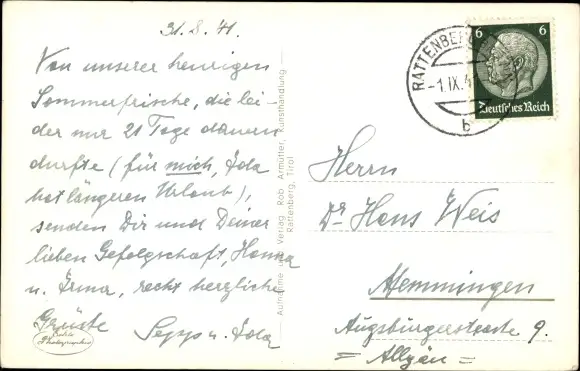 31.8.41.
Von unserer heurigen
Sommerfrische, die lei-
der nur 21 Tage dauern
durfte (für mich, Ida
hat längeren Urlaub),
senden Dir und Deiner
lieben Gefolgschaft, Hanna
u. Irma, recht herzliche
Grüsse
Sepp u. Ida
Echte
Photographie
Aufnahme und Verlag Rob. Armütter, Kunsthandlung
Rattenberg, Tirol
RATTENBERG
-1.IX.4
b
6 6
Deutsches Reich
Herrn
Dr Hans Weis
Memmingen
Augsburgerstrasse 9.
= Allgäu =